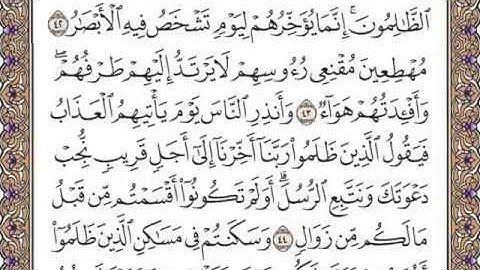 ٱلظَّٰلِمُونَ ۚ إِنَّمَا يُؤَخِّرُهُمْ لِيَوْمٍ تَشْخَصُ فِيهِ ٱلْأَبْصَٰرُ ٤٢
مُهْطِعِينَ مُقْنِعِى رُءُوسِهِمْ لَا يَرْتَدُّ إِلَيْهِمْ طَرْفُهُمْ ۖ
وَأَفْـِٔدَتُهُمْ هَوَآءٌ ٤٣ وَأَنذِرِ ٱلنَّاسَ يَوْمَ يَأْتِيهِمُ ٱلْعَذَابُ
فَيَقُولُ ٱلَّذِينَ ظَلَمُوا۟ رَبَّنَآ أَخِّرْنَآ إِلَىٰٓ أَجَلٍ قَرِيبٍ نُّجِبْ
دَعْوَتَكَ وَنَتَّبِعِ ٱلرُّسُلَ ۗ أَوَلَمْ تَكُونُوٓا۟ أَقْسَمْتُم مِّن قَبْلُ
مَا لَكُم مِّن زَوَالٍ ٤٤ وَسَكَنتُمْ فِى مَسَٰكِنِ ٱلَّذِينَ ظَلَمُوٓا۟